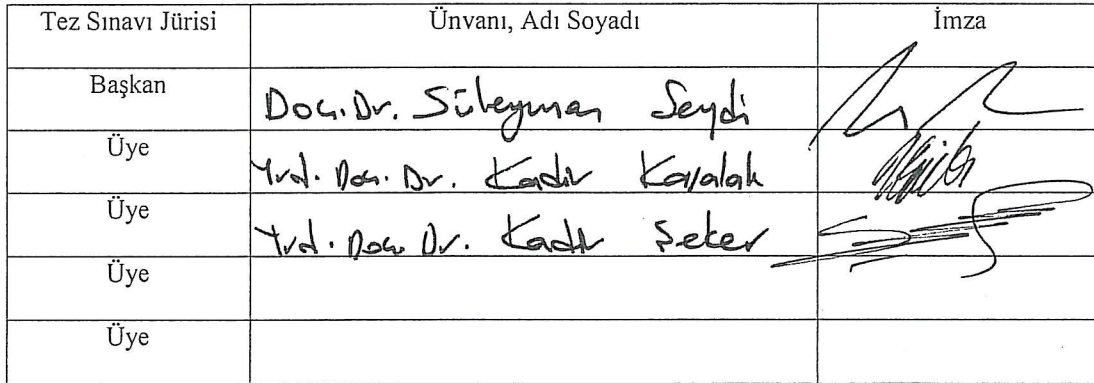 Tez Sınavı Jürisi Ünvanı, Adı Soyadı İmza
Başkan Doç. Dr. Süleyman Seydi
Üye Yrd. Doç. Dr. Kadir Kasalak
Üye Yrd. Doç. Dr. Kadir Şeker
Üye
Üye